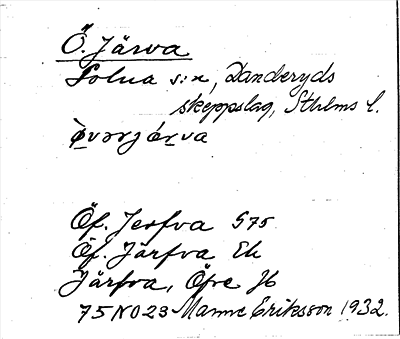 Ö. Järva
Solna s:n, Danderyds
skeppslag, Sthlms l.
Öf. Jerfva G75
Öf. Järfva Ek
Järfva, Öfre Jb
75 NO 23 Manne Eriksson 1932.